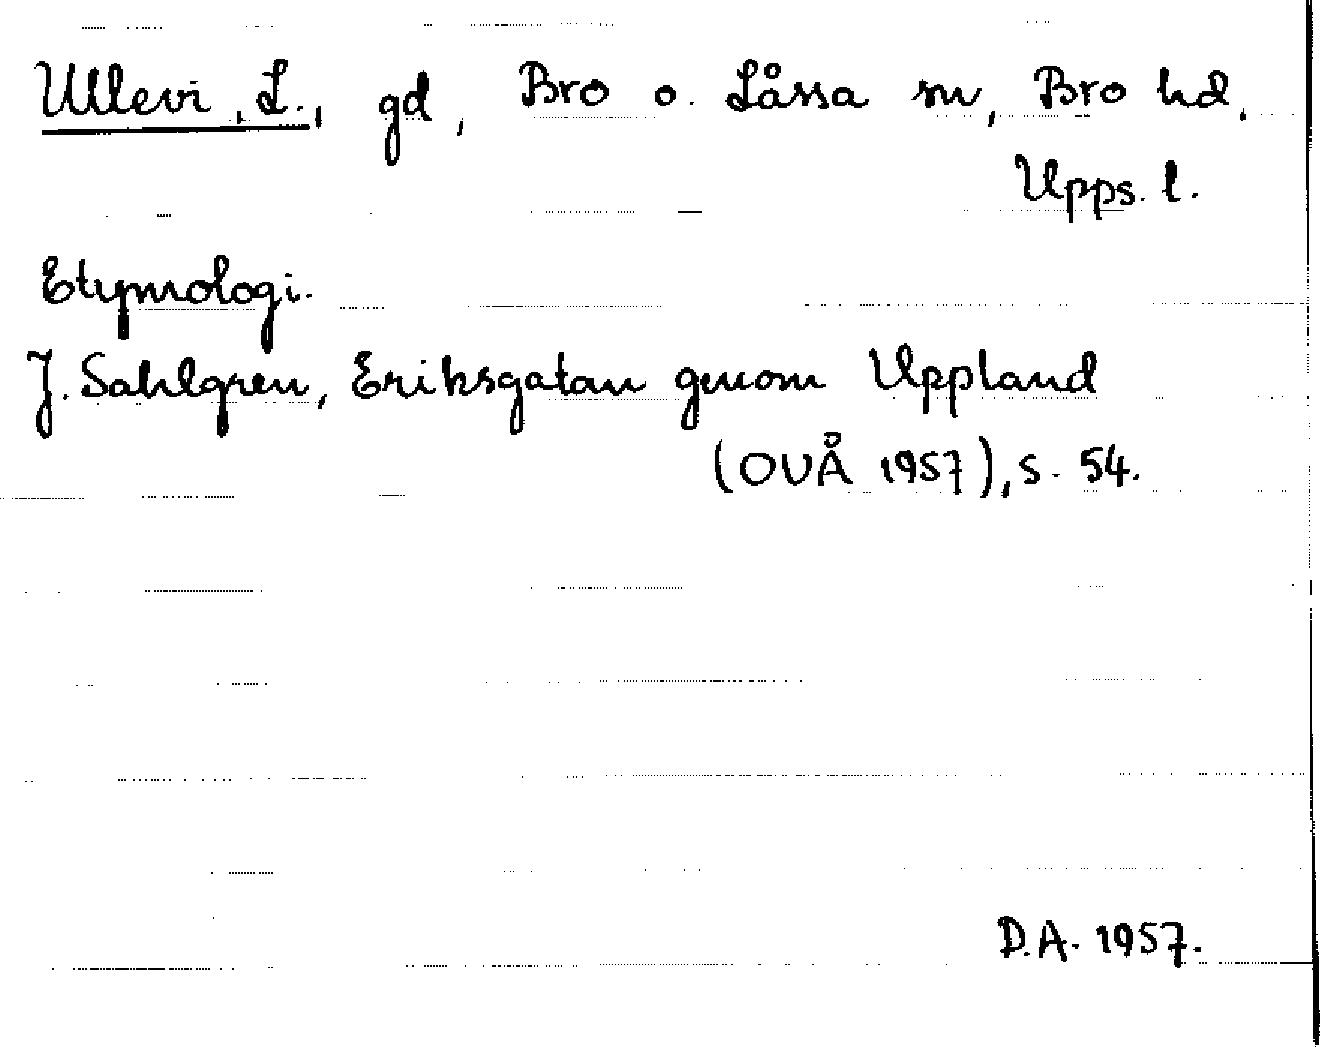 Ullevi, L., gd, Bro o. Låssa sn, Bro hd,
Upps. l.
Etymologi.
J. Sahlgren, Eriksgatan genom Uppland
(OUÅ 1957), s. 54.
D.A. 1957.